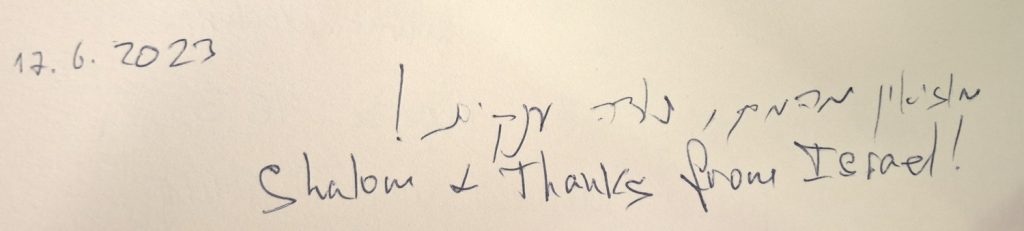 17.6.2023
מוזיאון מהמם, תודה ענקית!
Shalom & Thanks from Israel!